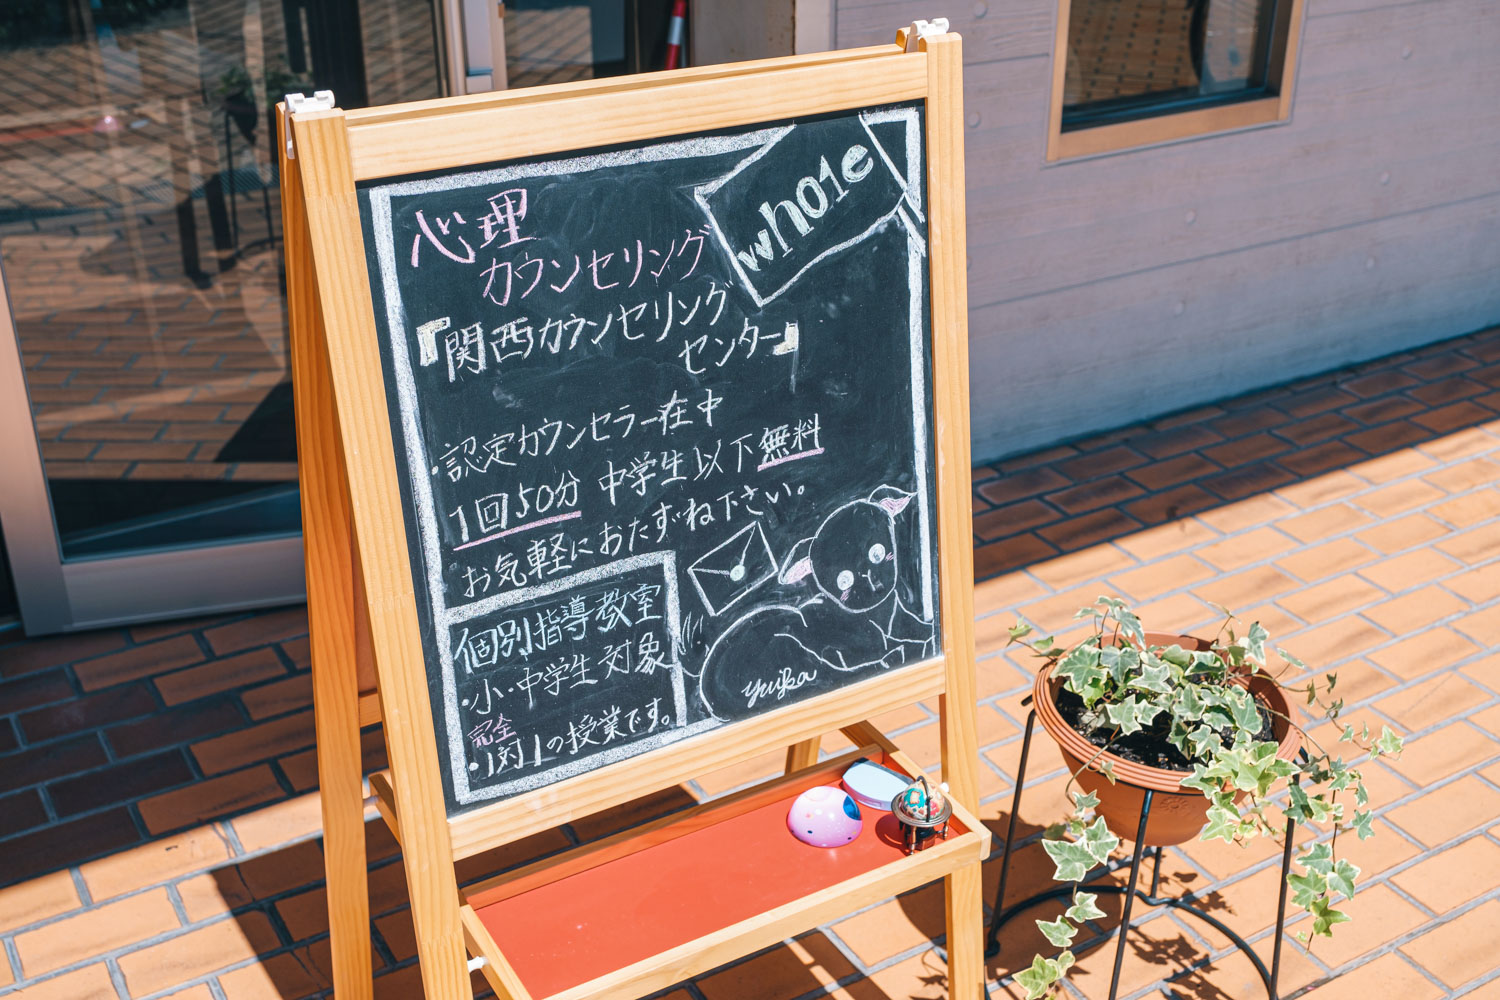 whole
心理
カウンセリング
『関西カウンセリング
センター』
・認定カウンセラー在中
1回50分 中学生以下無料
お気軽におたずね下さい。
個別指導教室
・小・中学生対象
完全
・1対1の授業です。
yuika